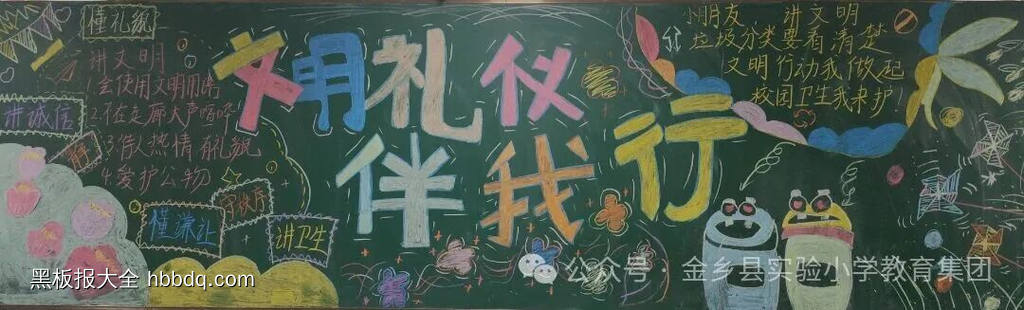 懂礼貌
讲文明
会使用文明用语
2.不在走廊大声喧哗
3.待人热情有礼貌
4.爱护公物
讲诚信
懂谦让
守秩序
讲卫生
文明礼仪
伴我行
小朋友 讲文明
垃圾分类要看清楚
文明行动我做起
校园卫生我来护
黑板报大全 hbbdq.com
公众号·金乡县实验小学教育集团